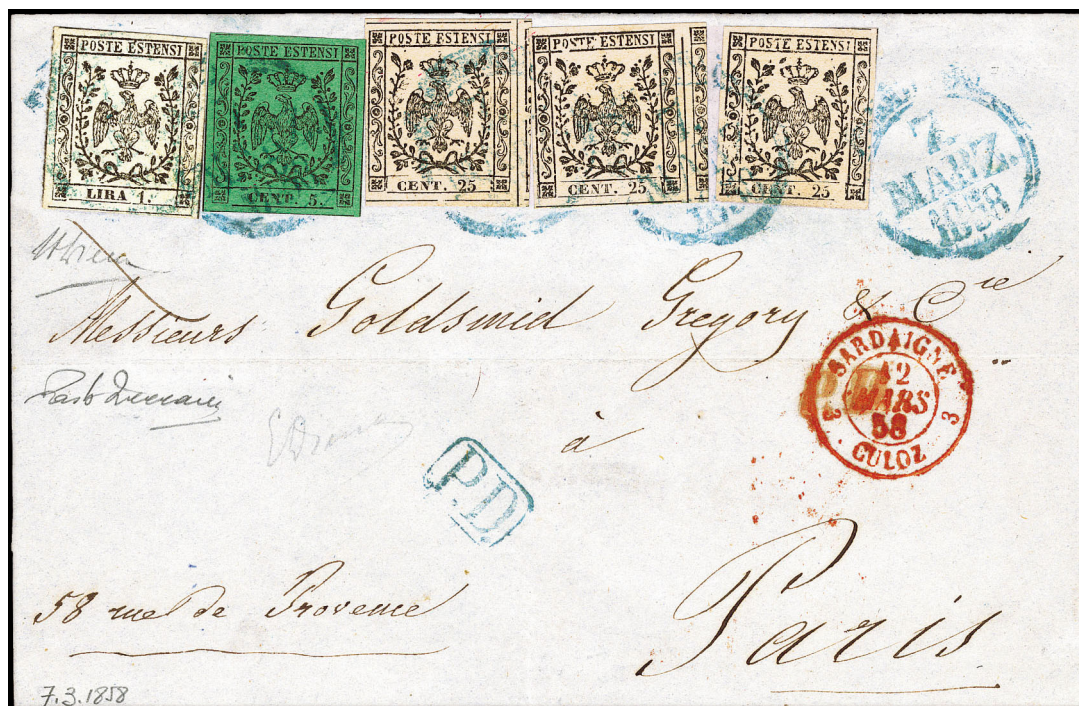 POSTE ESTENSI
LIRA 1.
POSTE ESTENSI
CENT. 5.
POSTE ESTENSI
CENT. 25
POSTE ESTENSI
CENT. 25
POSTE ESTENSI
CENT. 25
7.
MARZ.
1858
Messieurs Goldsmid Gregory & Cie
SARDAIGNE
12
MARS
58
3 3
CULOZ
à
P.D.
58 rue de Provence
Paris
7.3.1858